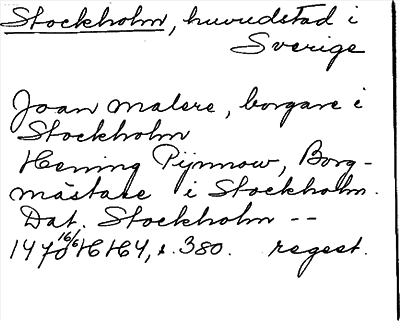 Stockholm, huvudstad i
Sverige
Joan Malere, borgare i
Stockholm
Hening Pijnnow, Borg-
mästare i Stockholm.
Dat. Stockholm --
1470 16/6 HH4, s. 380. regest.